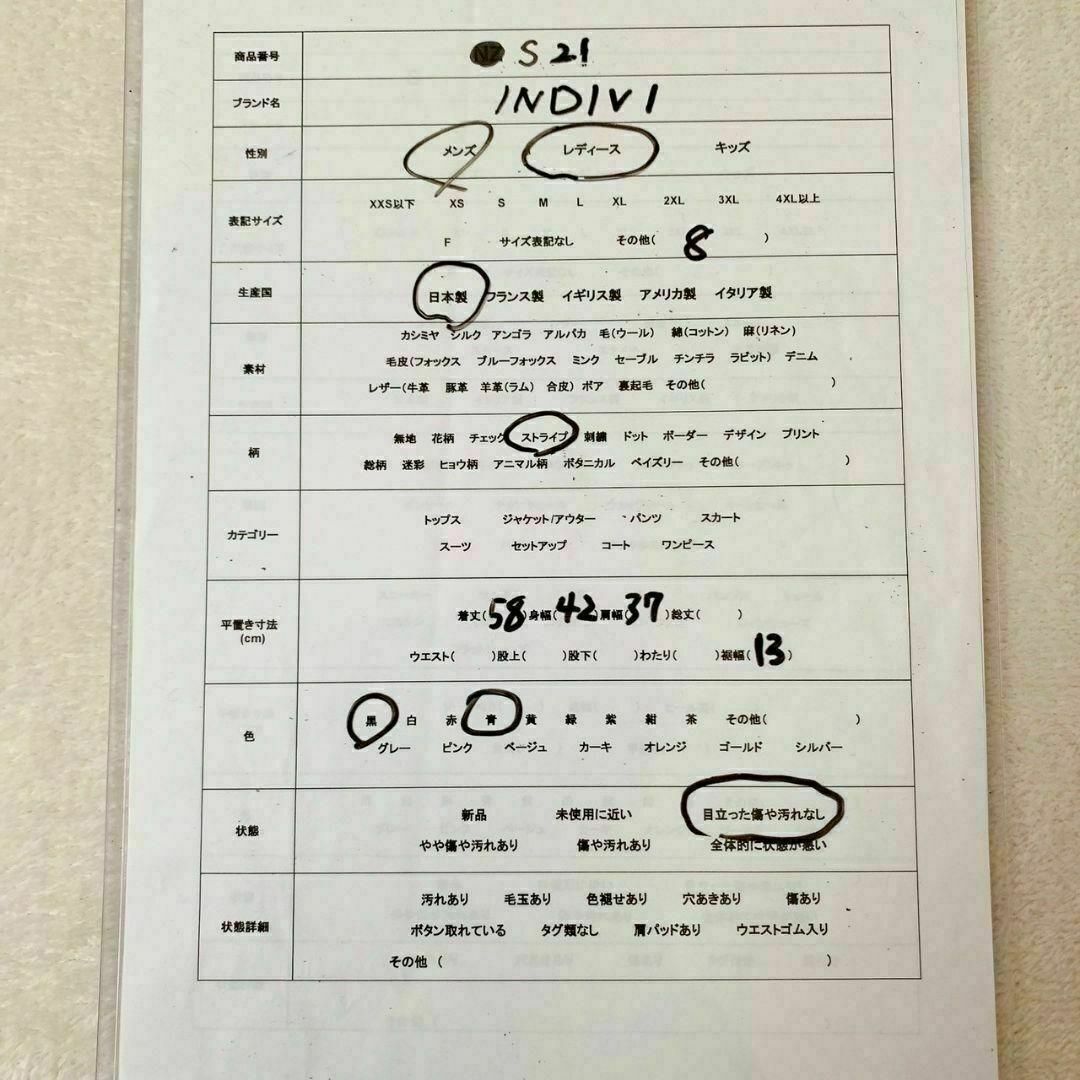 商品番号 NZ S 21
ブランド名 INDIVI
性別 メンズ レディース キッズ
表記サイズ XXS以下 XS S M L XL 2XL 3XL 4XL以上
F サイズ表記なし その他( 8 )
生産国 日本製 フランス製 イギリス製 アメリカ製 イタリア製
素材 カシミヤ シルク アンゴラ アルパカ 毛(ウール) 綿(コットン) 麻(リネン)
毛皮(フォックス ブルーフォックス ミンク セーブル チンチラ ラビット) デニム
レザー(牛革 豚革 羊革(ラム) 合皮) ボア 裏起毛 その他( )
柄 無地 花柄 チェック ストライプ 刺繍 ドット ボーダー デザイン プリント
総柄 迷彩 ヒョウ柄 アニマル柄 ボタニカル ペイズリー その他( )
カテゴリー トップス ジャケット/アウター パンツ スカート
スーツ セットアップ コート ワンピース
平置き寸法 (cm) 着丈( 58 )身幅( 42 )肩幅( 37 )総丈( )
ウエスト( )股上( )股下( )わたり( )裾幅( 13 )
色 黒 白 赤 青 黄 緑 紫 紺 茶 その他( )
グレー ピンク ベージュ カーキ オレンジ ゴールド シルバー
状態 新品 未使用に近い 目立った傷や汚れなし
やや傷や汚れあり 傷や汚れあり 全体的に状態が悪い
状態詳細 汚れあり 毛玉あり 色褪せあり 穴あきあり 傷あり
ボタン取れている タグ類なし 肩パッドあり ウエストゴム入り
その他 ( )